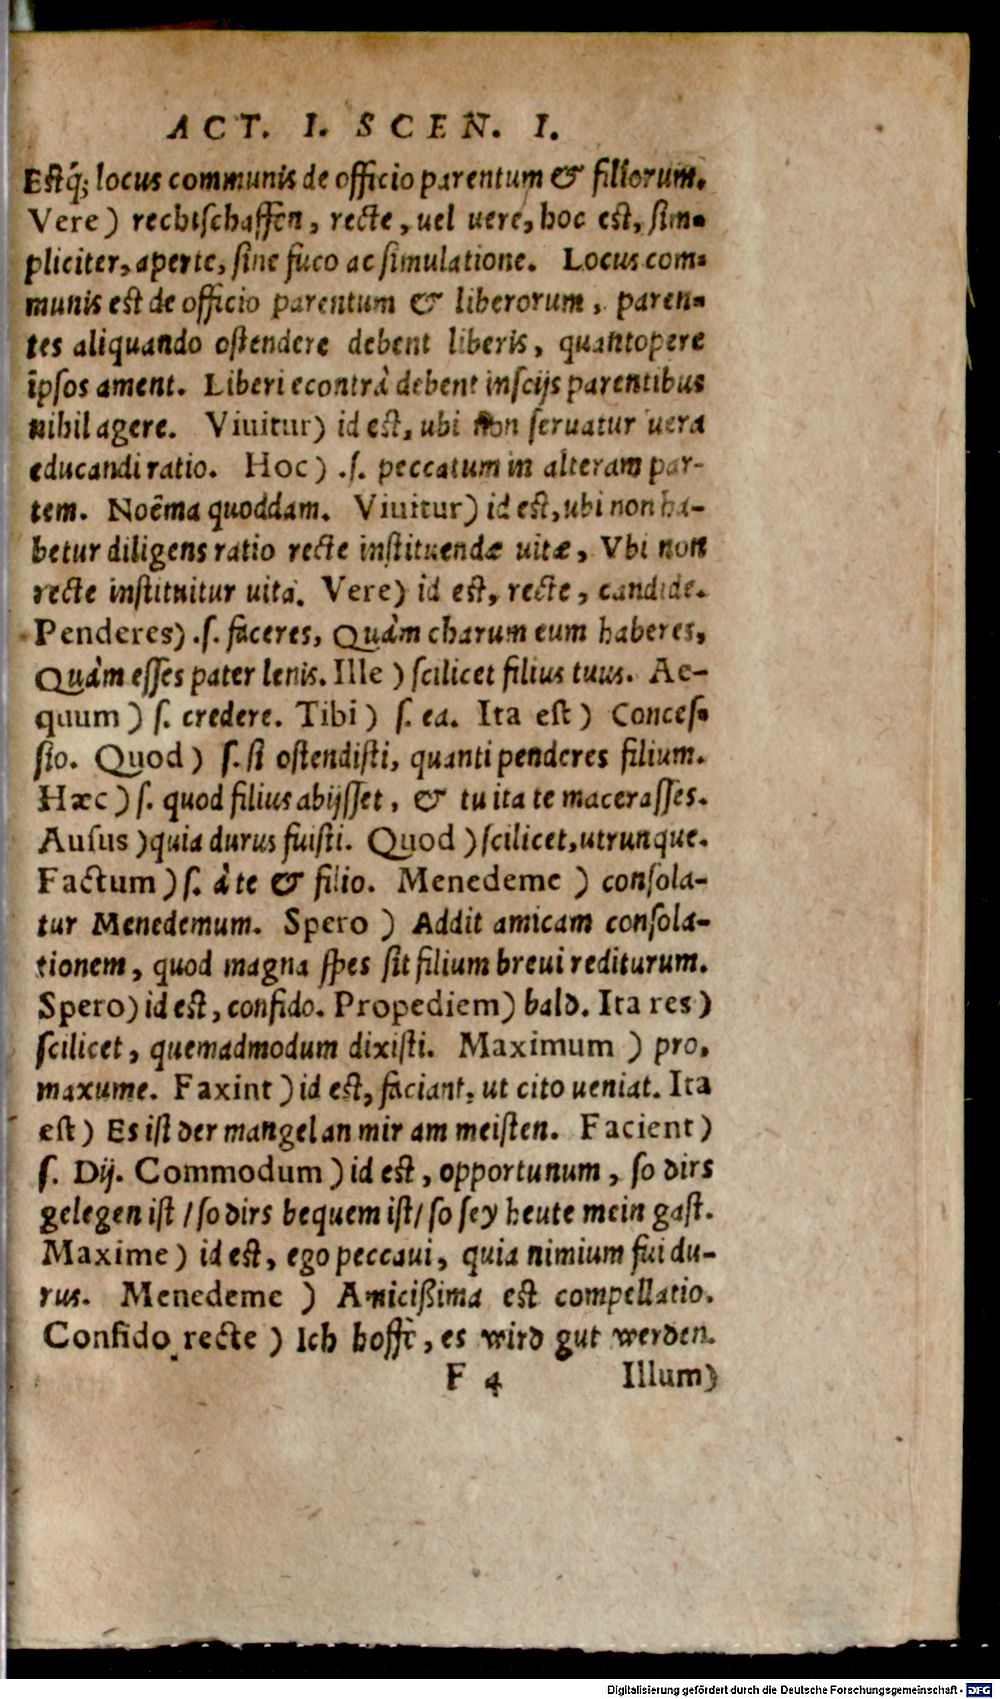 ACT. I. SCEN. I.
Estq́; locus communis de officio parentum & filiorum.
Vere) rechtschaffen, recte, uel uere, hoc est, sim-
pliciter, aperte, sine fuco ac simulatione. Locus com-
munis est de officio parentum & liberorum, paren-
tes aliquando ostendere debent liberis, quantopere
ipsos ament. Liberi econtrà debent inscijs parentibus
nihil agere. Viuitur) id est, ubi non seruatur uera
educandi ratio. Hoc) .s. peccatum in alteram par-
tem. Noëma quoddam. Viuitur) id est, ubi non ha-
betur diligens ratio recte instituendæ uitæ, Vbi non
recte instituitur uita. Vere) id est, recte, candide.
Penderes) .s. faceres, Quàm charum eum haberes,
Quàm esses pater lenis. Ille ) scilicet filius tuus. Ae-
quum ) s. credere. Tibi ) s. ea. Ita est ) Conces-
sio. Quod ) s. si ostendisti, quanti penderes filium.
Hæc ) s. quod filius abijsset, & tu ita te macerasses.
Ausus )quia durus fuisti. Quod )scilicet, utrunque.
Factum ) s. à te & filio. Menedeme ) consola-
tur Menedemum. Spero ) Addit amicam consola-
tionem, quod magna spes sit filium breui rediturum.
Spero) id est, confido. Propediem) bald. Ita res )
scilicet, quemadmodum dixisti. Maximum ) pro,
maxume. Faxint ) id est, faciant, ut cito ueniat. Ita
est ) Es ist der mangel an mir am meisten. Facient )
s. Dij. Commodum ) id est, opportunum, so dirs
gelegen ist / so dirs bequem ist/ so sey heute mein gast.
Maxime ) id est, ego peccaui, quia nimium fui du-
rus. Menedeme ) Amicißima est compellatio.
Confido recte ) Ich hoffe, es wird gut werden.
F 4 Illum)
Digitalisierung gefördert durch die Deutsche Forschungsgemeinschaft - DFG